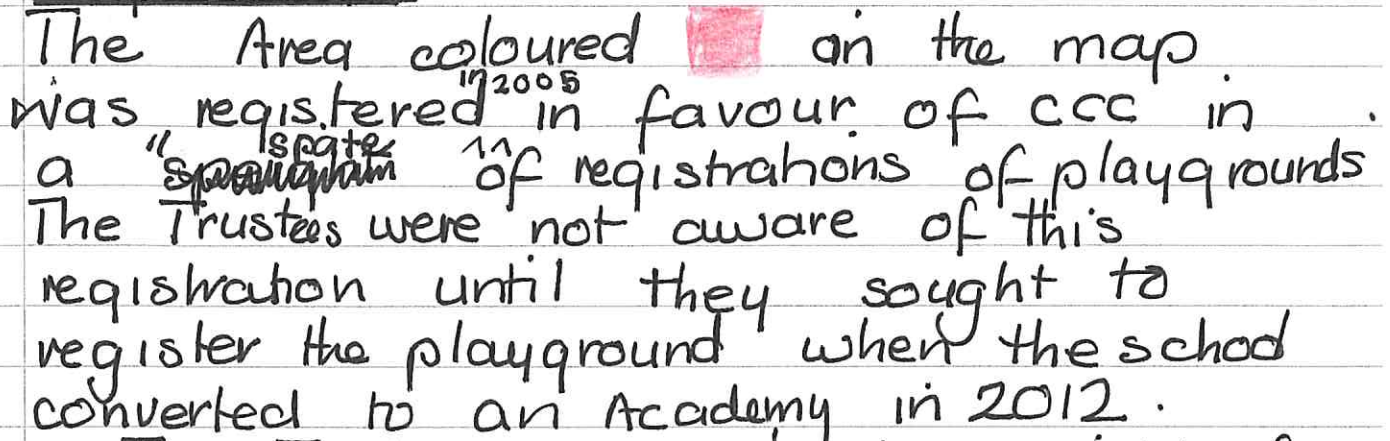 The Area coloured on the map
was registered in 2005 in favour of CCC in
a "spate" of registrations of playgrounds
The Trustees were not aware of this
registration until they sought to
register the playground when the school
converted to an Academy in 2012.